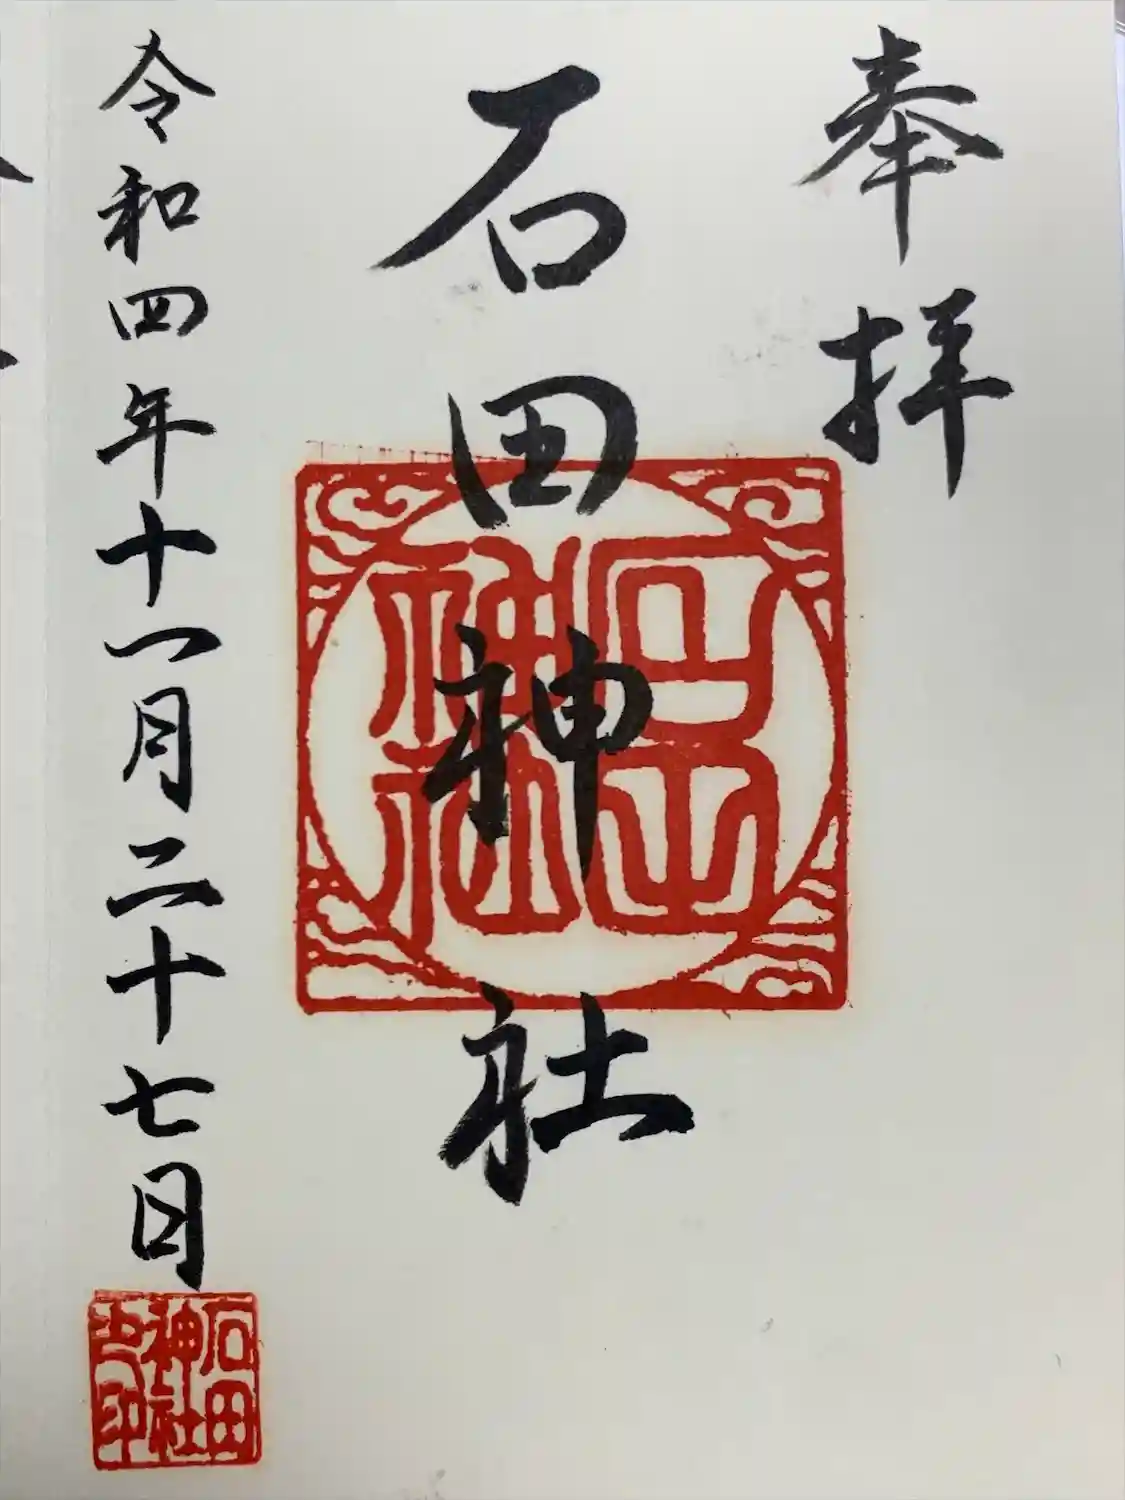 奉拝
石田神社
令和四年十一月二十七日
石田
神社
之印